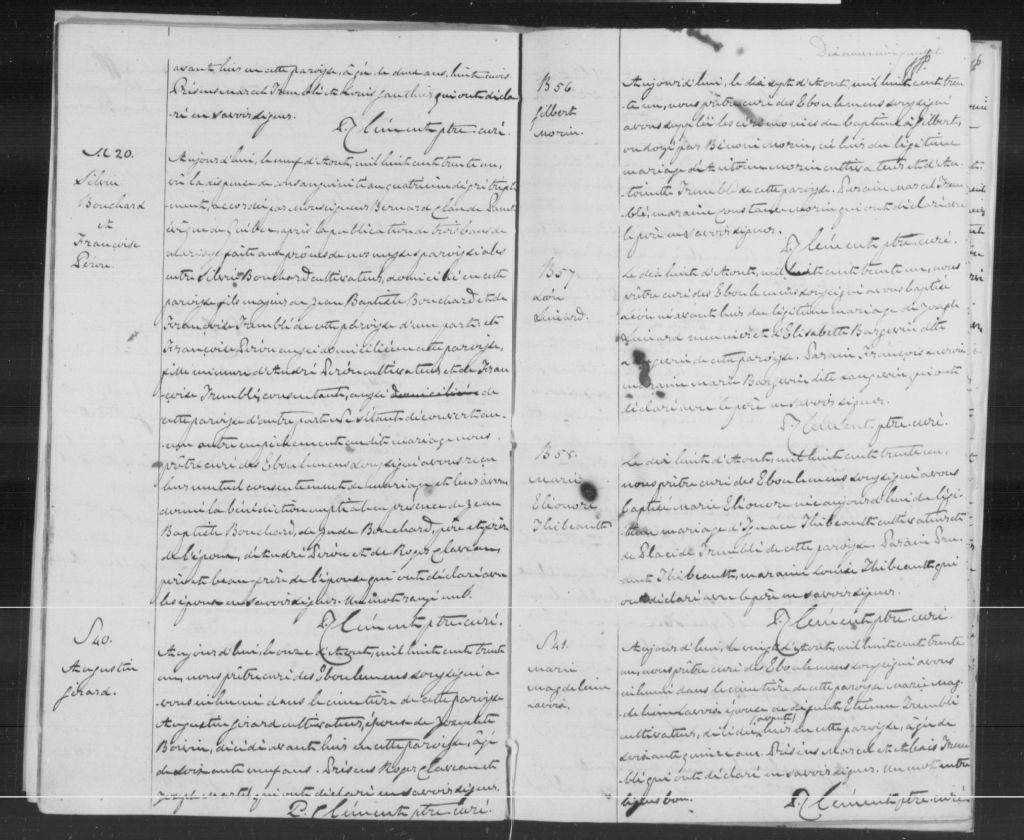 avant hier en cette paroisse, âgée de deux ans, huit mois
Présens Marcel Tremblé et Louis Gauthier qui ont décla-
ré ne savoir signer.
P. Clément ptre. curé.
M 20.
Silvin
Bouchard
et
Françoise
Péron.
Aujourd'hui, le neuf d'Aout, mil huit cent trente un,
vu la dispense de consanguinité au quatrième degré
accordée par Monseigneur Bernard Claude Panet
évêque de Québec, après la publication de trois bans de
mariage faite aux prônes de nos messes paroissiales
entre Silvin Bouchard cultivateur, domicilié en cette
paroisse, fils majeur de Jean Baptiste Bouchard et de
Françoise Tremblé de cette paroisse d'une part; et
Françoise Péron aussi domiciliée en cette paroisse,
fille mineure d'André Péron cultivateur et de Fran-
çoise Tremblé, consentant, aussi domiciliée de
cette paroisse d'autre part; ne s'étant découvert au-
cun autre empêchement au dit mariage nous
prêtre curé des Eboulemens soussigné avons reçu
leur mutuel consentement de mariage et leur avons
donné la bénédiction nuptiale en présence de Jean
Baptiste Bouchard, de Bouchard, père et frère
de l'époux, d'André Péron et de Roger Claveau,
père et beau frère de l'épouse qui ont déclaré avec
les époux ne savoir signer. Un mot rayé nul.
P. Clément ptre. curé.
S 40.
Augustin
Girard.
Aujourd'hui, le onze d'Aout, mil huit cent trente
un, nous prêtre curé des Eboulemens soussigné a-
vons inhumé dans le cimetière de cette paroisse
Augustin Girard cultivateur, époux de Josephte
Boivin, décédé avant hier en cette paroisse, âgé
de soixante neuf ans. Présens Roger Claveau et
Joseph Martel qui ont déclaré ne savoir signer.
P. Clément ptre. curé.
B 56.
Gilbert
Morin.
Aujourd'hui, le dix sept d'Aout, mil huit cent tren-
te un, nous prêtre curé des Eboulemens soussigné
avons suppléé les cérémonies du baptême à Gilbert,
ondoyé par Bénoni Morin, né hier du légitime
mariage de Antoine Morin cultivateur et d'An-
toinette Tremblé de cette paroisse. Parain Marcel Trem-
blé, maraine Constance Morin qui ont déclaré avec
le père ne savoir signer.
P. Clément ptre. curé.
B 57
Léon
Le dix huit d'Aout, mil huit cent trente un, nous
prêtre curé des Eboulemens soussigné avons baptisé
Léon né avant hier du légitime mariage de Joseph
meunier et d'Elisabeth Bergevin dite
Langevin de cette paroisse. Parain François
maraine Marie Bergevin dite Langevin qui ont
déclaré avec le père ne savoir signer.
P. Clément ptre. curé.
B 58.
Marie
Eléonore
Thibeault
Le dix huit d'Aout, mil huit cent trente un,
nous prêtre curé des Eboulemens soussigné avons
baptisé Marie Eléonore née aujourd'hui de légi-
time mariage d'Ignace Thibeault cultivateur et
de Placide Tremblé de cette paroisse. Parain
Thibeault, maraine Louise Thibeault qui
ont déclaré avec le père ne savoir signer.
P. Clément ptre. curé.
S 41.
Marie
Magdeleine
Savoie.
Aujourd'hui, le vingt d'Aout, mil huit cent trente
un, nous prêtre curé des Eboulemens soussigné avons
inhumé dans le cimetière de cette paroisse Marie Mag-
deleine Savoie épouse de défunt Etienne Tremblé
cultivateur, décédée (avant) hier en cette paroisse, âgée de
soixante quinze ans. Présens Marcel et Trem-
blé qui ont déclaré ne savoir signer. Un mot entre
lignes bon.
P. Clément ptre. curé